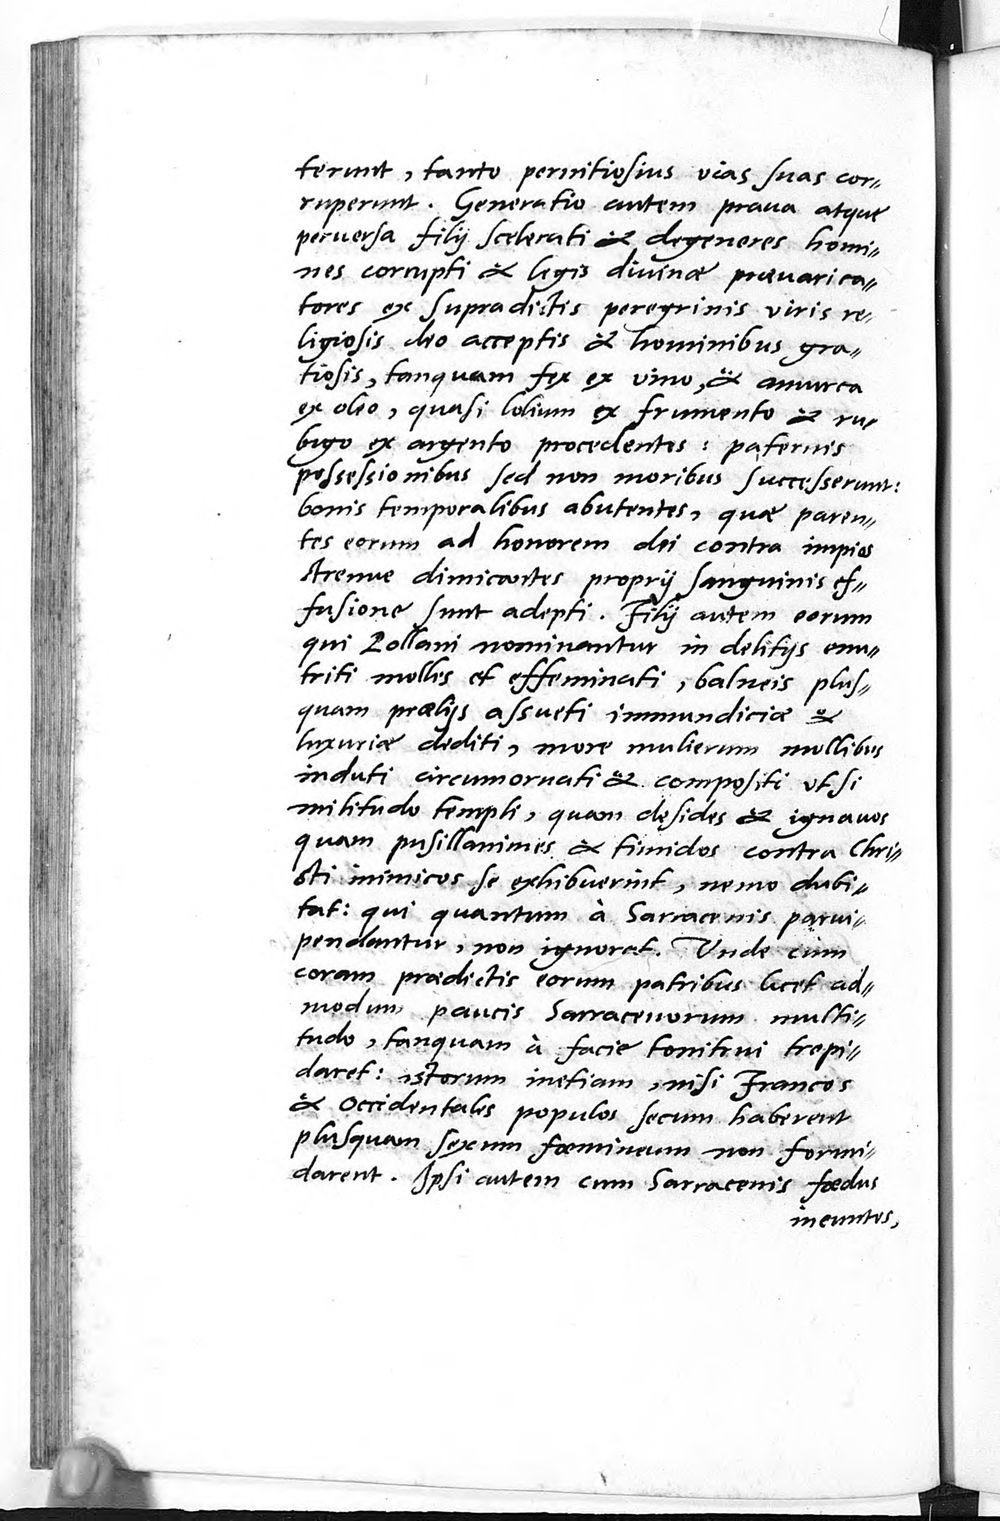 terunt, tanto pernitiosius vias suas cor„
ruperunt. Generatio autem praua atque
peruersa filij scelerati & degeneres homi„
nes corrupti & legis divinæ præuarica„
tores ex supradictis peregrinis viris re„
ligiosis deo acceptis & hominibus gra„
tiosis, tanquam fex ex vino, & amurca
ex oleo, quasi lolium ex frumento & ru„
bigo ex argento procedentes: paternis
possessionibus sed non moribus successerunt:
bonis temporalibus abutentes, quæ paren„
tes eorum ad honorem dei contra impios
strenue dimicantes proprij sanguinis ef„
fusione sunt adepti. Filij autem eorum
qui Pollani nominantur in delitijs enu„
triti molles et effeminati, balneis plus„
quam prælijs assueti immundiciæ &
luxuriæ dediti, more mulierum mollibus
induti circumornati & compositi ut si
militudo templi, quam desides & ignauos
quam pusillanimes & timidos contra Chri„
sti inimicos se exhibuerint, nemo dubi„
tat: qui quantum à Sarracenis parui„
pendantur, non ignorat. Unde cum
coram prædictis eorum patribus licet ad„
modum paucis Sarracenorum multi„
tudo, tanquam à facie tonitrui trepi„
daret: istorum inetiam, nisi Francos
& Occidentales populos secum haberent
plusquam sexum fœmineum non formi„
darent. Ipsi autem cum Sarracenis fœdus
ineuntes,